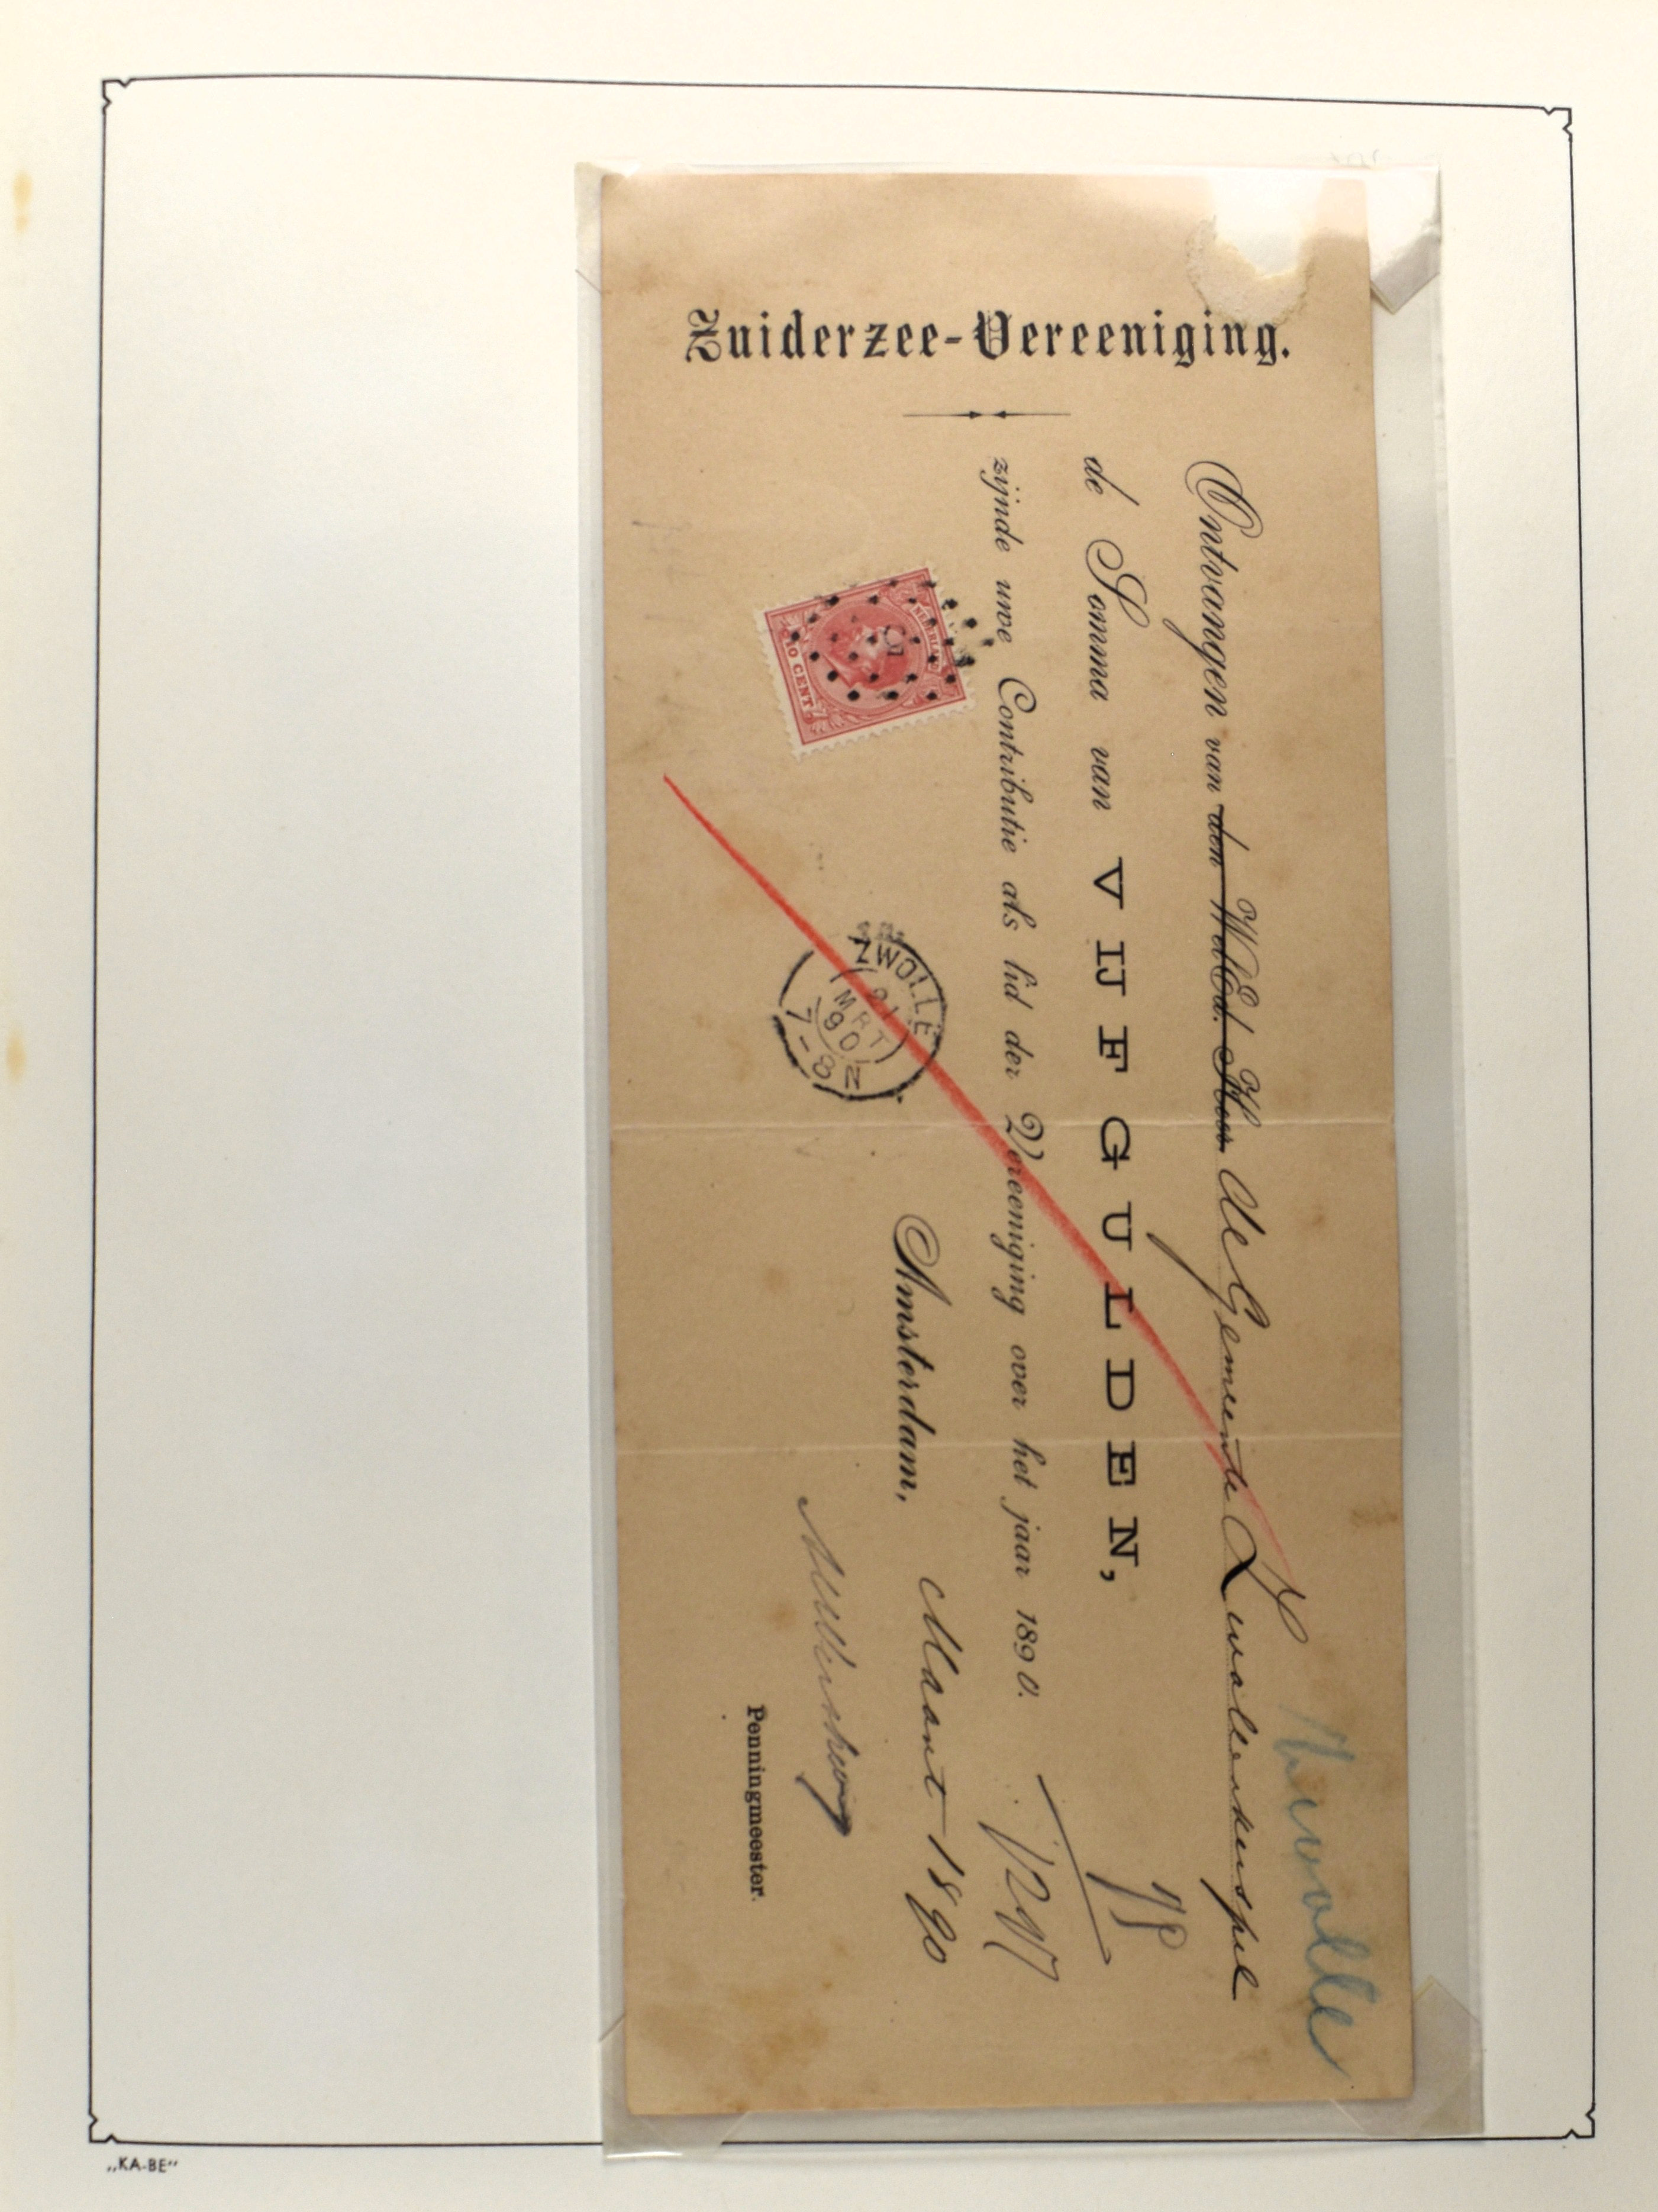 Zuiderzee-Vereeniging.
Zwolle
Ontvangen van den WelEd. Heer De Gemeente Zwollerkerspel
W E H
de Somma van VIJF GULDEN,
zijnde uwe Contributie als lid der Vereeniging over het jaar 1890.
NEDERLAND
5
10 CENT
ZWOLLE
21
MRT
90
7-8N
Amsterdam, Maart 1890
Penningmeester.
„KA-BE"